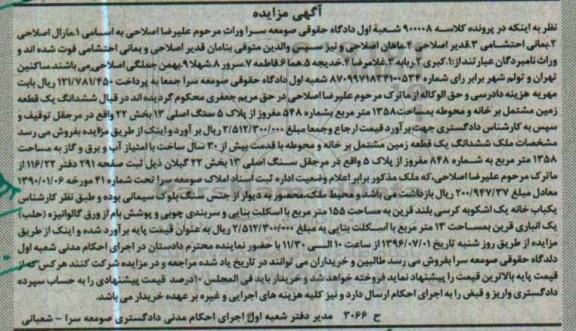 آگهی مزایده
نظر به اینکه در پرونده کلاسه ۹۰۰۰۰۸ شعبه اول دادگاه حقوقی صومعه سرا وراث مرحوم علیرضا اصلاحی به اسامی ۱.مارال اصلاحی
۲.یمانی احتشامی ۳.قدیر اصلاحی ۴.ماهان اصلاحی و نیز سپس والدین متوفی بنامان قدیر اصلاحی و یمانی احتشامی فوت شده اند و
وراث نامبردگان عبارتنداز:۱.کبری ۲.ربابه ۳.غلامرضا ۴.خدیجه ۵.هما ۶.فاطمه ۷.سرور ۸.شهلا ۹.بهمن جملگی اصلاحی می باشند.ساکنین
تهران و تولم شهر برابر رای شماره ۸۷۰۹۹۷۱۸۳۴۱۰۰۵۳۴ شعبه اول دادگاه حقوقی صومعه سرا جمعا به پرداخت ۱۲۱/۷۸۱/۴۵۰ ریال بابت
مهریه هزینه دادرسی و حق الوکاله از ماترک مرحوم علیرضا اصلاحی در حق مریم جعفری محکوم گردیده اند در قبال ششدانگ یک قطعه
زمین مشتمل بر خانه و محوطه به مساحت ۱۳۵۸ متر مربع بشماره ۵۴۸ مفروز از پلاک ۵ سنگ اصلی ۱۳ بخش ۲۲ واقع در مرجقل توقیف و
سپس به کارشناس دادگستری جهت برآورد قیمت ارجاع و جمعا مبلغ ۲/۵۱۲/۳۰۰/۰۰۰ ریال برآورد و اینک از طریق مزایده بفروش می رسد
مشخصات ملک ششدانگ یک قطعه زمین مشتمل بر خانه و محوطه با قدمت بیش از ۳۰ سال ساخت با امتیاز آب و برق و گاز به مساحت
۱۳۵۸ متر مربع به شماره ۸۴۸ مفروز از پلاک ۵ واقع در مرجقل سنگ اصلی ۱۳ بخش ۲۲ گیلان ذیل ثبت صفحه ۲۹۱ دفتر ۱۱۶/۲۲ از
ماترک مرحوم علیرضا اصلاحی،که ملک مذکور برابر اعلام وضعیت اداره ثبت اسناد املاک صومعه سرا تحت شماره ۴۱ مورخه ۱۳۹۰/۰۱/۰۶
معادل مبلغ ۲۰۰/۹۴۷/۳۷ ریال بازداشت می باشد و محیط ملک محصور به دیوار از جنس سنگ بلوک سیمانی بوده و طبق نظر کارشناس
یکباب خانه یک اشکوبه کرسی بلند قرین به مساحت ۱۵۵ متر مربع با اسکلت بنایی و سربندی چوبی و پوشش بام از ورق گالوانیزه (حلب)
یک انباری قرین بمساحت ۱۳ متر مربع با اسکلت بنایی به مبلغ ۲/۵۱۲/۳۰۰/۰۰۰ ریال به عنوان قیمت پایه برآورد شده و اینک از طریق
مزایده از طریق روز شنبه تاریخ ۱۳۹۶/۰۷/۰۱ از ساعت ۱۰ الی ۱۱/۳۰ با حضور نماینده محترم دادستان در اجرای احکام مدنی شعبه اول
دادگاه حقوقی صومعه سرا بفروش می رسد طالبین و خریداران می توانند در تاریخ یاد شده مراجعه و در مزایده شرکت کنند هر کس که از
قیمت پایه بالاترین قیمت را پیشنهاد نماید فروخته خواهد شد و خریدار باید فی المجلس ۱۰درصد قیمت پیشنهادی را به حساب سپرده
دادگستری واریز و قبض را به اجرای احکام ارسال دارد و نیز کلیه هزینه های اجرایی و غیره بر عهده خریدار می باشد.
ح ۳۰۶۶ مدیر دفتر شعبه اول اجرای احکام مدنی دادگستری صومعه سرا - شعبانی